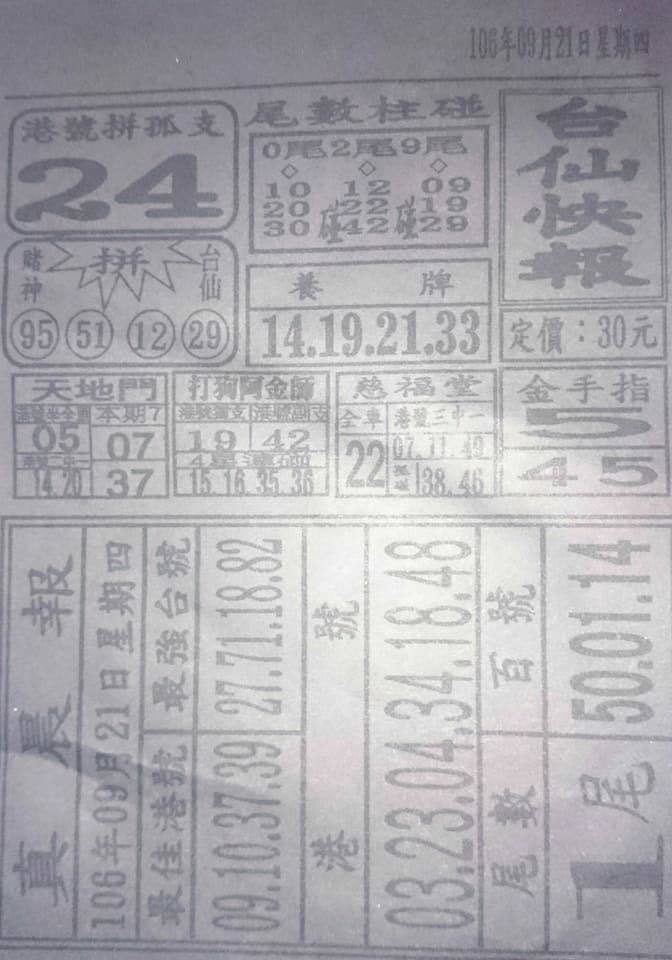 106年09月21日星期四
台仙快報
定價：30元
尾數柱碰
0尾2尾9尾
10 12 09
20碰22碰19
30 42 29
養牌
14.19.21.33
港號拼孤支
24
賭神 拼 台仙
95 51 12 29
金手指
5
45
慈福堂
全車 港號三中一
22 07.11.49
38.46
打狗阿金師
港號獨支 港號副支
19 42
15.16.35.36
天地門
本期7
05 07
14.20 37
真晨報
106年09月21日星期四
最佳港號 最強台號
09.10.37.39 27.71.18.82
港號
03.23.04.34.18.48
尾數 百號
1尾 50.01.14